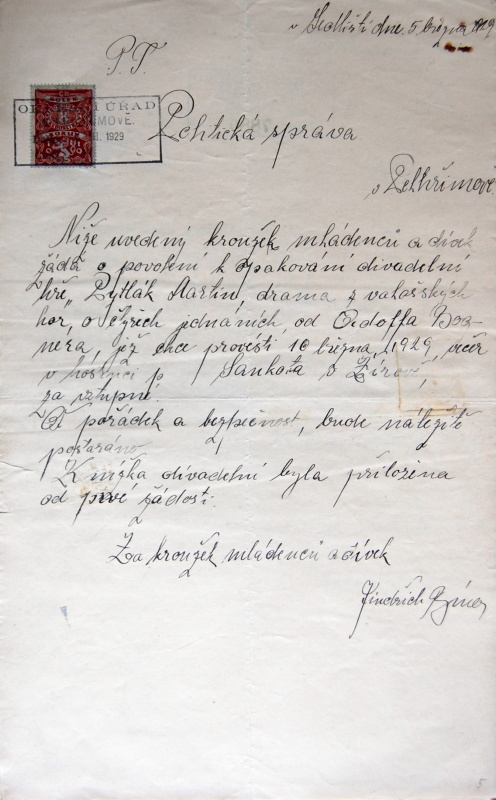 v Sedlišti dne 5. března 1929
P. T.
OKRESNÍ ÚŘAD
1929
Politická správa
v Pelhřimově.
Níže uvedený kroužek mládenců a dívek
žádá o povolení k opakování divadelní
hře „Pytlák Martin, drama z valašských
hor, o čtyřech jednáních, od
jež chce provésti 10 března, 1929, večer
v hostinci p Sankota v Žirově,
za vstupné.
O pořádek a bezpečnost, bude náležitě
postaráno
Knížka divadelní byla přiložena
od prvé žádosti.
Za kroužek mládenců a dívek
Jindřich
5